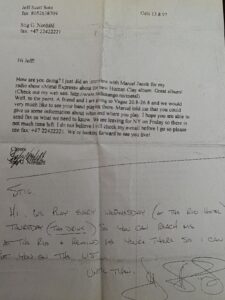 Jeff Scott Soto
fax:
Stig G. Nordahl
fax: +47 22422221
Hi Jeff!
How are you doing? I just did an interview with Marcel Jacob for my
radio show (Metal Express) about the new Human Clay album. Great album!
(Check out my web site: http://www.
Well, to the point. A friend and I are going to Vegas 20.8-26.8 and we would
very much like to see your band playing there. Marcel told me that you could
give us some information about when and where you play. I hope you are able to
send fax us what we need to know. We are leaving for NY on Friday so there is
not much time left. I do not believe I will check my e-mail before I go so please
use fax: +47 22422221. We're looking forward to see you live!
Cheers
STIG,
HI, WE PLAY EVERY WEDNESDAY (AT THE RIO HOTEL)
THURSDAY (THE DRINK) SO YOU CAN REACH ME
AT THE RIO & REMIND ME YOU'RE THERE SO I CAN
PUT YOU ON THE LIST
UNTIL THEN,